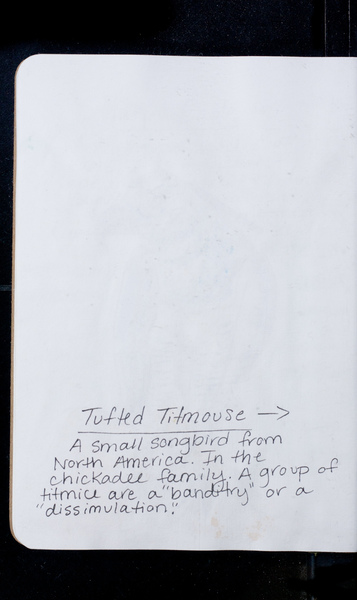 Tufted Titmouse →
A small songbird from
North America. In the
chickadee family. A group of
titmice are a "banditry" or a
"dissimulation".